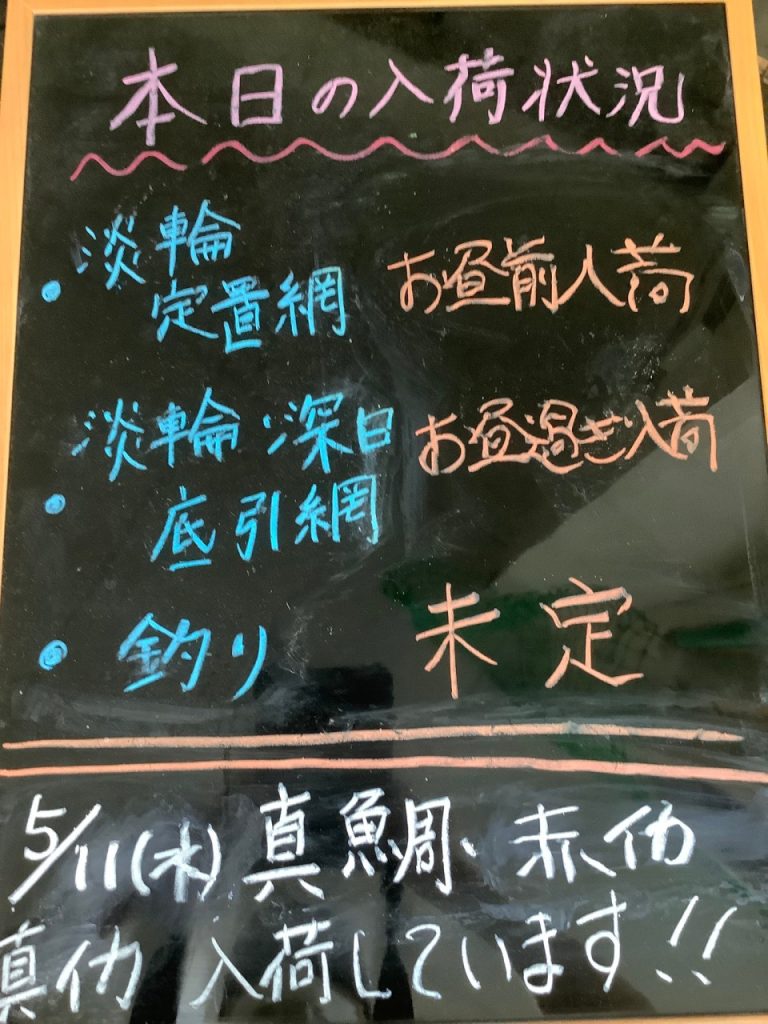 本日の入荷状況
淡輪
・ 定置網 お昼前入荷
淡輪・深日 お昼過ぎ入荷
・ 底引網
・ 釣り 未定
5/11(水)真鯛、赤仂
真仂 入荷しています!!